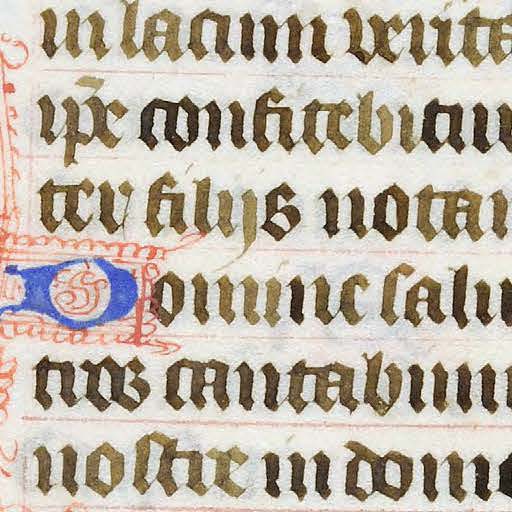 in lacum verita
ip̄e confitebitu
ter filijs notam
Domine saluu
tros cantabim
nostre in domo